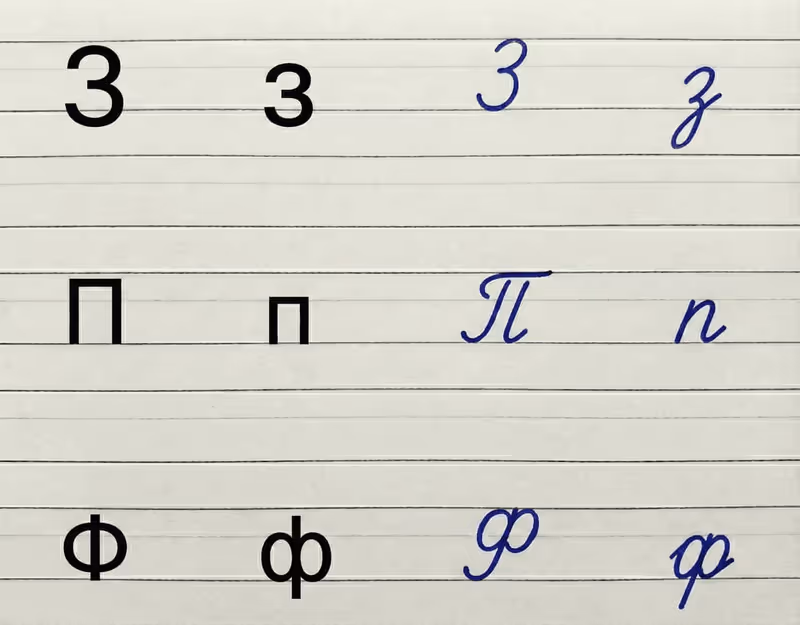 З з З з
П п П п
Ф ф Ф ф